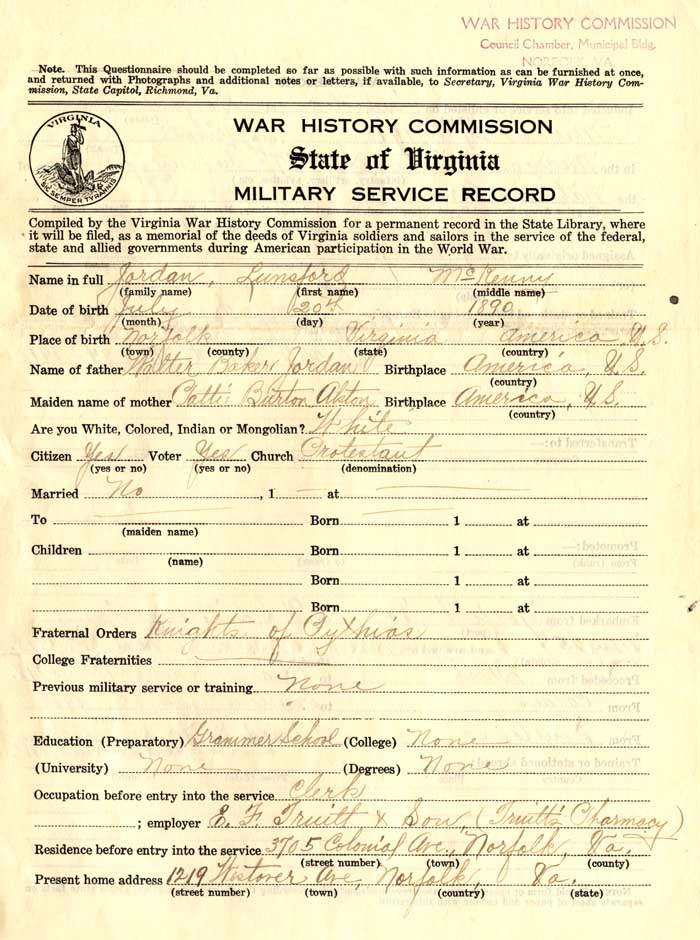 WAR HISTORY COMMISSION
Council Chamber, Municipal Bldg,
NORFOLK, VA.
Note. This Questionnaire should be completed so far as possible with such information as can be furnished at once,
and returned with Photographs and additional notes or letters, if available, to Secretary, Virginia War History Com-
mission, State Capitol, Richmond, Va.
VIRGINIA
SIC SEMPER TYRANNIS
WAR HISTORY COMMISSION
State of Virginia
MILITARY SERVICE RECORD
Compiled by the Virginia War History Commission for a permanent record in the State Library, where
it will be filed, as a memorial of the deeds of Virginia soldiers and sailors in the service of the federal,
state and allied governments during American participation in the World War.
Name in full Jordan, Lunsford McKenny
(family name) (first name) (middle name)
Date of birth July 20th 1890
(month) (day) (year)
Place of birth Norfolk Virginia America U.S.
(town) (county) (state) (country)
Name of father Walter Baker Jordan Birthplace America, U.S.
(country)
Maiden name of mother Pattie Burton Birthplace America, U.S.
(country)
Are you White, Colored, Indian or Mongolian? White
Citizen Yes Voter Yes Church Protestant
(yes or no) (yes or no) (denomination)
Married No , 1 at
To Born 1 at
(maiden name)
Children Born 1 at
(name)
Born 1 at
Born 1 at
Fraternal Orders Knights of Pythias
College Fraternities
Previous military service or training None
Education (Preparatory) Grammer School (College) None
(University) None (Degrees) None
Occupation before entry into the service Clerk
; employer E. F. Truitt & Son, (Truitt's Pharmacy)
Residence before entry into the service 3705 Colonial Ave., Norfolk, Va.
(street number) (town) (county)
Present home address 1219 Westover Ave, Norfolk, Va.
(street number) (town) (country) (state)